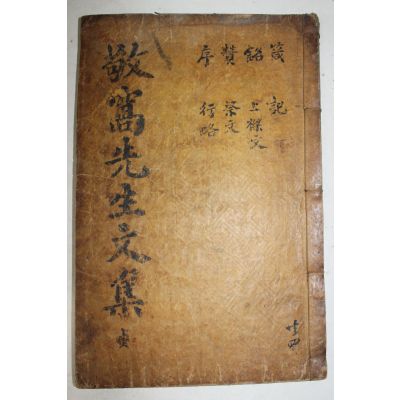 共四
箴 記
銘 上樑文
賛 祭文
序 行略
敬窩先生文集 貞